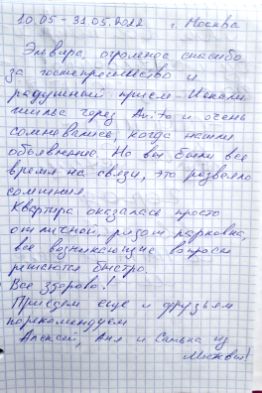 10.05 - 31.05.2022 г. Москва
Эльвира, огромное спасибо
за гостеприимство и
радушный прием - Искали
жилье через Avito и очень
сомневались, когда нашли
объявление. Но вы были все
время на связи, это развеяло
сомнения.
Квартира оказалась просто
отличной, рядом парковка,
все возникающие вопросы
решаются быстро.
Все здорово!
Приедем еще и друзьям
порекомендуем
Алексей, Аня и из
Москвы!